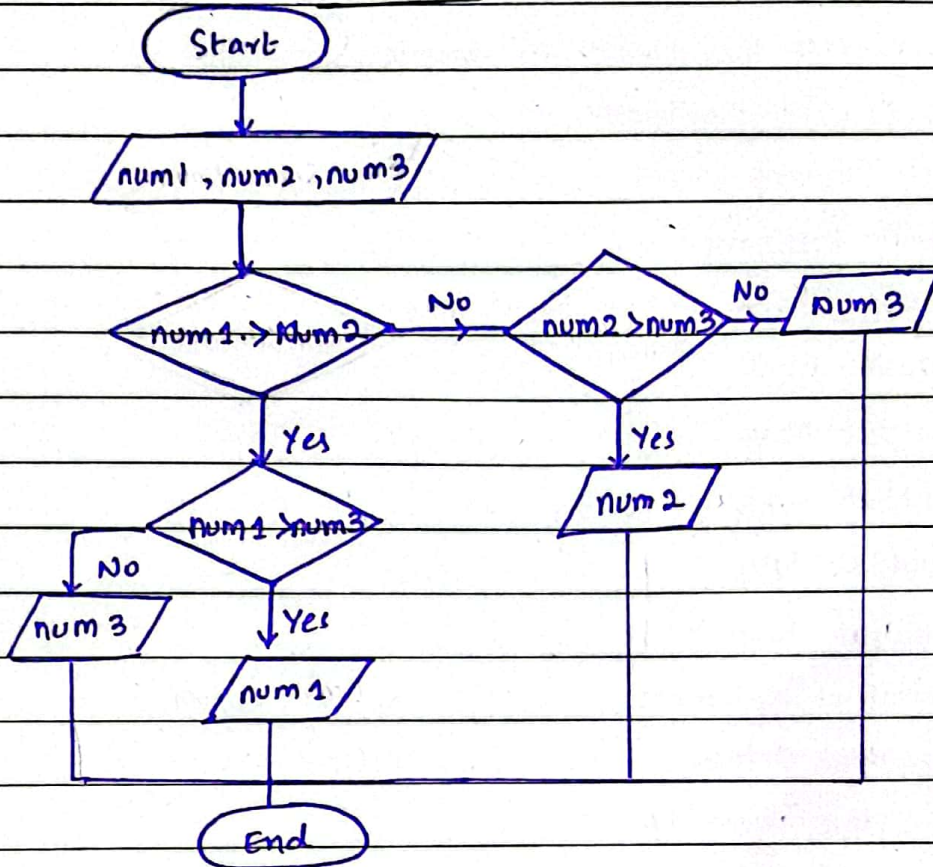 Start
num1, num2, num3
num1.>Num2
No
num2>num3
No
Num 3
Yes
Yes
num1>num3
num2
No
num 3
Yes
num 1
End